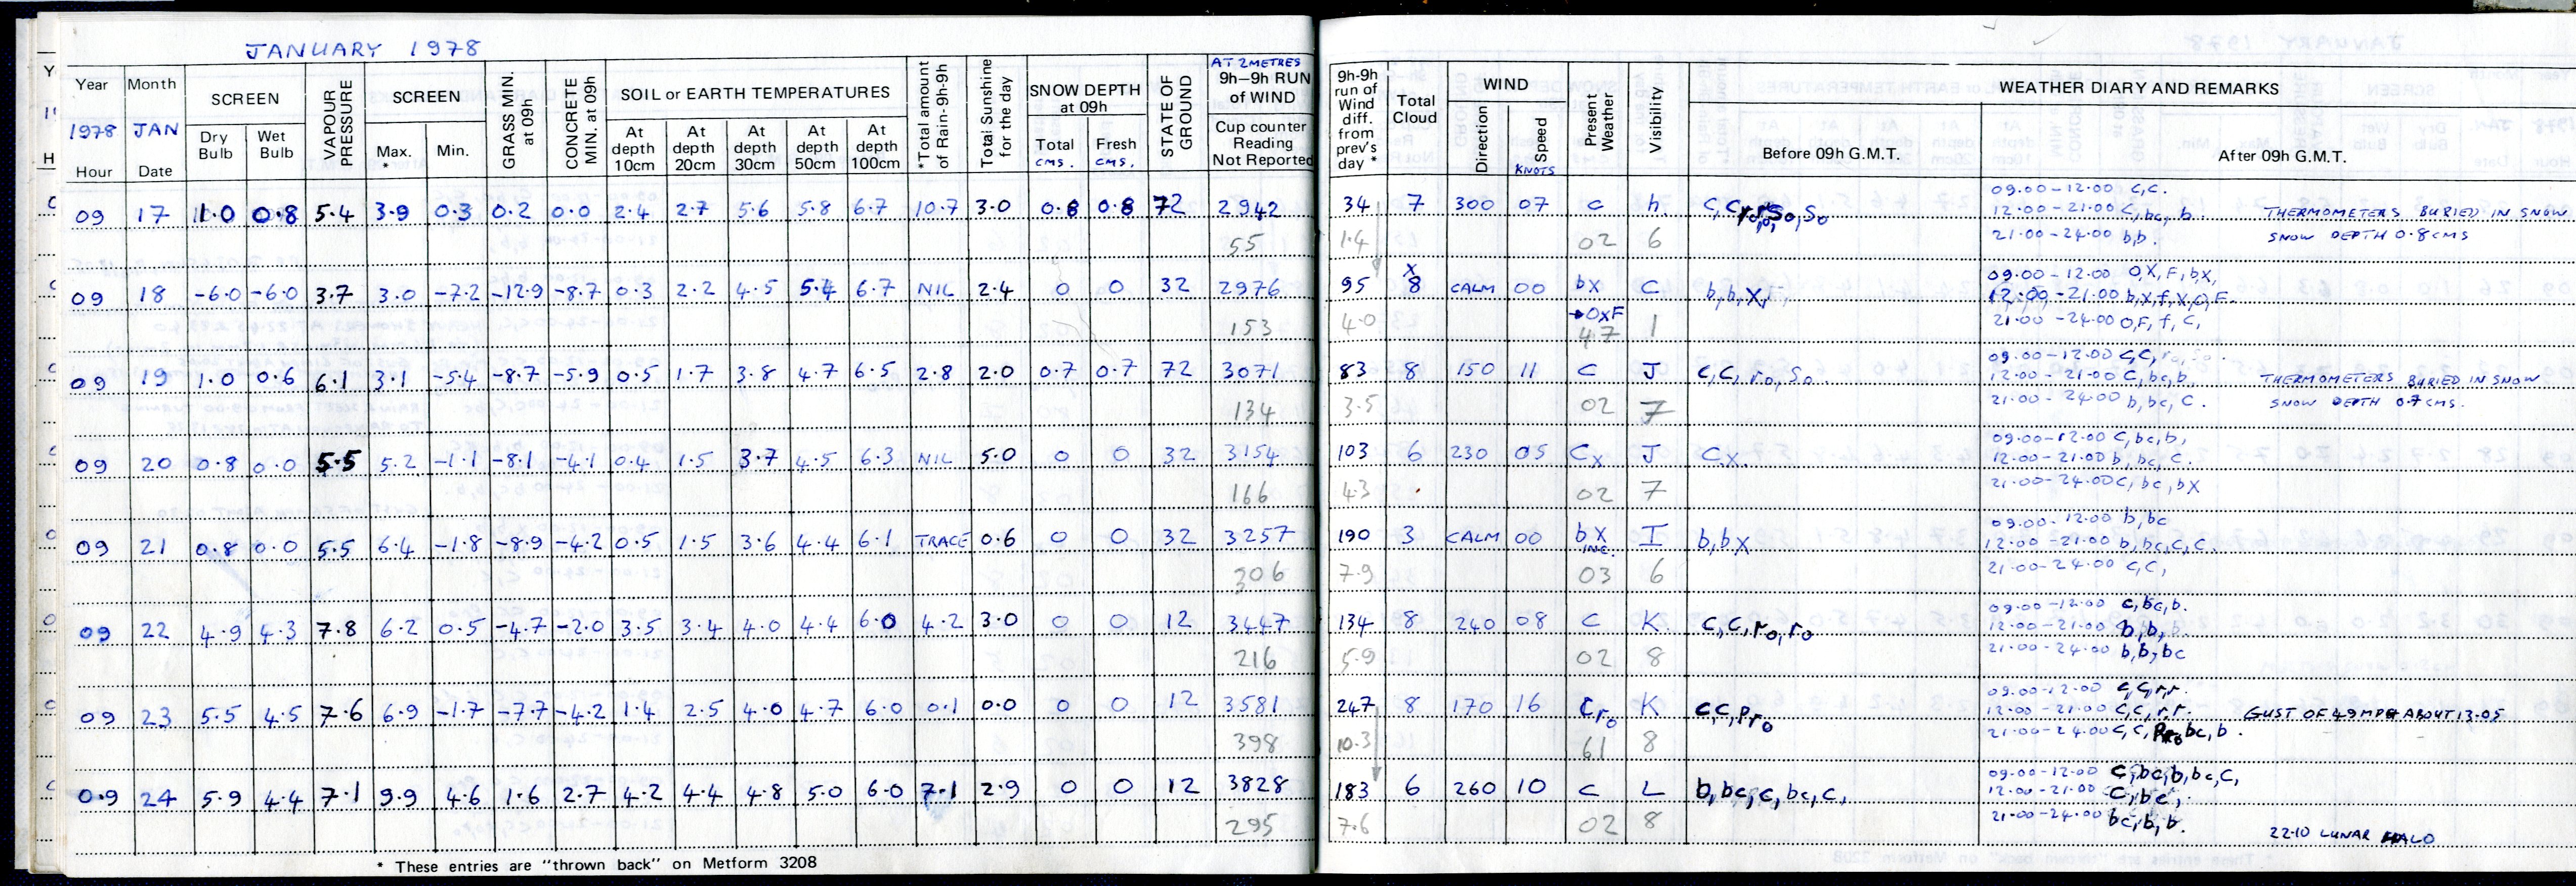 JANUARY 1978
Year Month SCREEN VAPOUR PRESSURE SCREEN GRASS MIN. at 09h CONCRETE MIN. at 09h SOIL or EARTH TEMPERATURES *Total amount of Rain-9h-9h Total Sunshine for the day SNOW DEPTH at 09h STATE OF GROUND AT 2 METRES 9h-9h RUN of WIND 9h-9h run of Wind diff. from prev's day * Total Cloud WIND Present Weather Visibility WEATHER DIARY AND REMARKS
1978 JAN Dry Bulb Wet Bulb Max. * Min. At depth 10cm At depth 20cm At depth 30cm At depth 50cm At depth 100cm Total CMS. Fresh CMS. Cup counter Reading Not Reported Direction Speed KNOTS Before 09h G.M.T. After 09h G.M.T.
Hour Date
09 17 1.0 0.8 5.4 3.9 0.3 0.2 0.0 2.4 2.7 5.6 5.8 6.7 10.7 3.0 0.8 0.8 72 2942 34 7 300 07 c h
09.00-12.00 c,c.
12.00-21.00 c,bc,b. THERMOMETERS BURIED IN SNOW
55 1.4 02 6 21.00-24.00 b,b. SNOW DEPTH 0.8 CMS
09 18 -6.0 -6.0 3.7 3.0 -7.2 -12.9 -8.7 0.3 2.2 4.5 5.4 6.7 NIL 2.4 0 0 32 2976 95 x 8 CALM 00 bx C b,b,x,
09.00-12.00 OX,F,bX,
12.00-21.00 b,x,f,x,c,F.
153 4.0 →OXF 47 1 21.00-24.00 O,F,f,C,
09 19 1.0 0.6 6.1 3.1 -5.4 -8.7 -5.9 0.5 1.7 3.8 4.7 6.5 2.8 2.0 0.7 0.7 72 3071 83 8 150 11 c J c,c,ro,so.
09.00-12.00 C,C,
12.00-21.00 C,bc,b, THERMOMETERS BURIED IN SNOW
134 3.5 02 7 21.00-24.00 b,bc,C. SNOW DEPTH 0.7 CMS.
09 20 0.8 0.0 5.5 5.2 -1.1 -8.1 -4.1 0.4 1.5 3.7 4.5 6.3 NIL 5.0 0 0 32 3154 103 6 230 05 Cx J Cx.
09.00-12.00 C,bc,b,
12.00-21.00 b,bc,C.
166 4.3 02 7 21.00-24.00 C,bc,bX
09 21 0.8 0.0 5.5 6.4 -1.8 -8.9 -4.2 0.5 1.5 3.6 4.4 6.1 TRACE 0.6 0 0 32 3257 190 3 CALM 00 bx INC. I b,bx
09.00-12.00 b,bc
12.00-21.00 b,bc,c,C.
306 7.9 03 6 21.00-24.00 C,C,
09 22 4.9 4.3 7.8 6.2 0.5 -4.7 -2.0 3.5 3.4 4.0 4.4 6.0 4.2 3.0 0 0 12 3447 134 8 240 08 C K c,c,ro,ro
09.00-12.00 c,bc,b.
12.00-21.00 b,b,b.
216 5.9 02 8 21.00-24.00 b,b,bc
09 23 5.5 4.5 7.6 6.9 -1.7 -7.7 -4.2 1.4 2.5 4.0 4.7 6.0 0.1 0.0 0 0 12 3581 247 8 170 16 cro K c,c,pro
09.00-12.00 c,c,r,r.
12.00-21.00 c,c,r,r. GUST OF 49 MPH ABOUT 13.05
398 10.3 61 8 21.00-24.00 c,c, bc,b.
0.9 24 5.9 4.4 7.1 9.9 4.6 1.6 2.7 4.2 4.4 4.8 5.0 6.0 7.1 2.9 0 0 12 3828 183 6 260 10 c L b,bc,c,bc,c,
09.00-12.00 C,bc,b,bc,C,
12.00-21.00 C,bc,
295 7.6 02 8 21.00-24.00 bc,b,b.
22.10 LUNAR HALO
* These entries are "thrown back" on Metform 3208